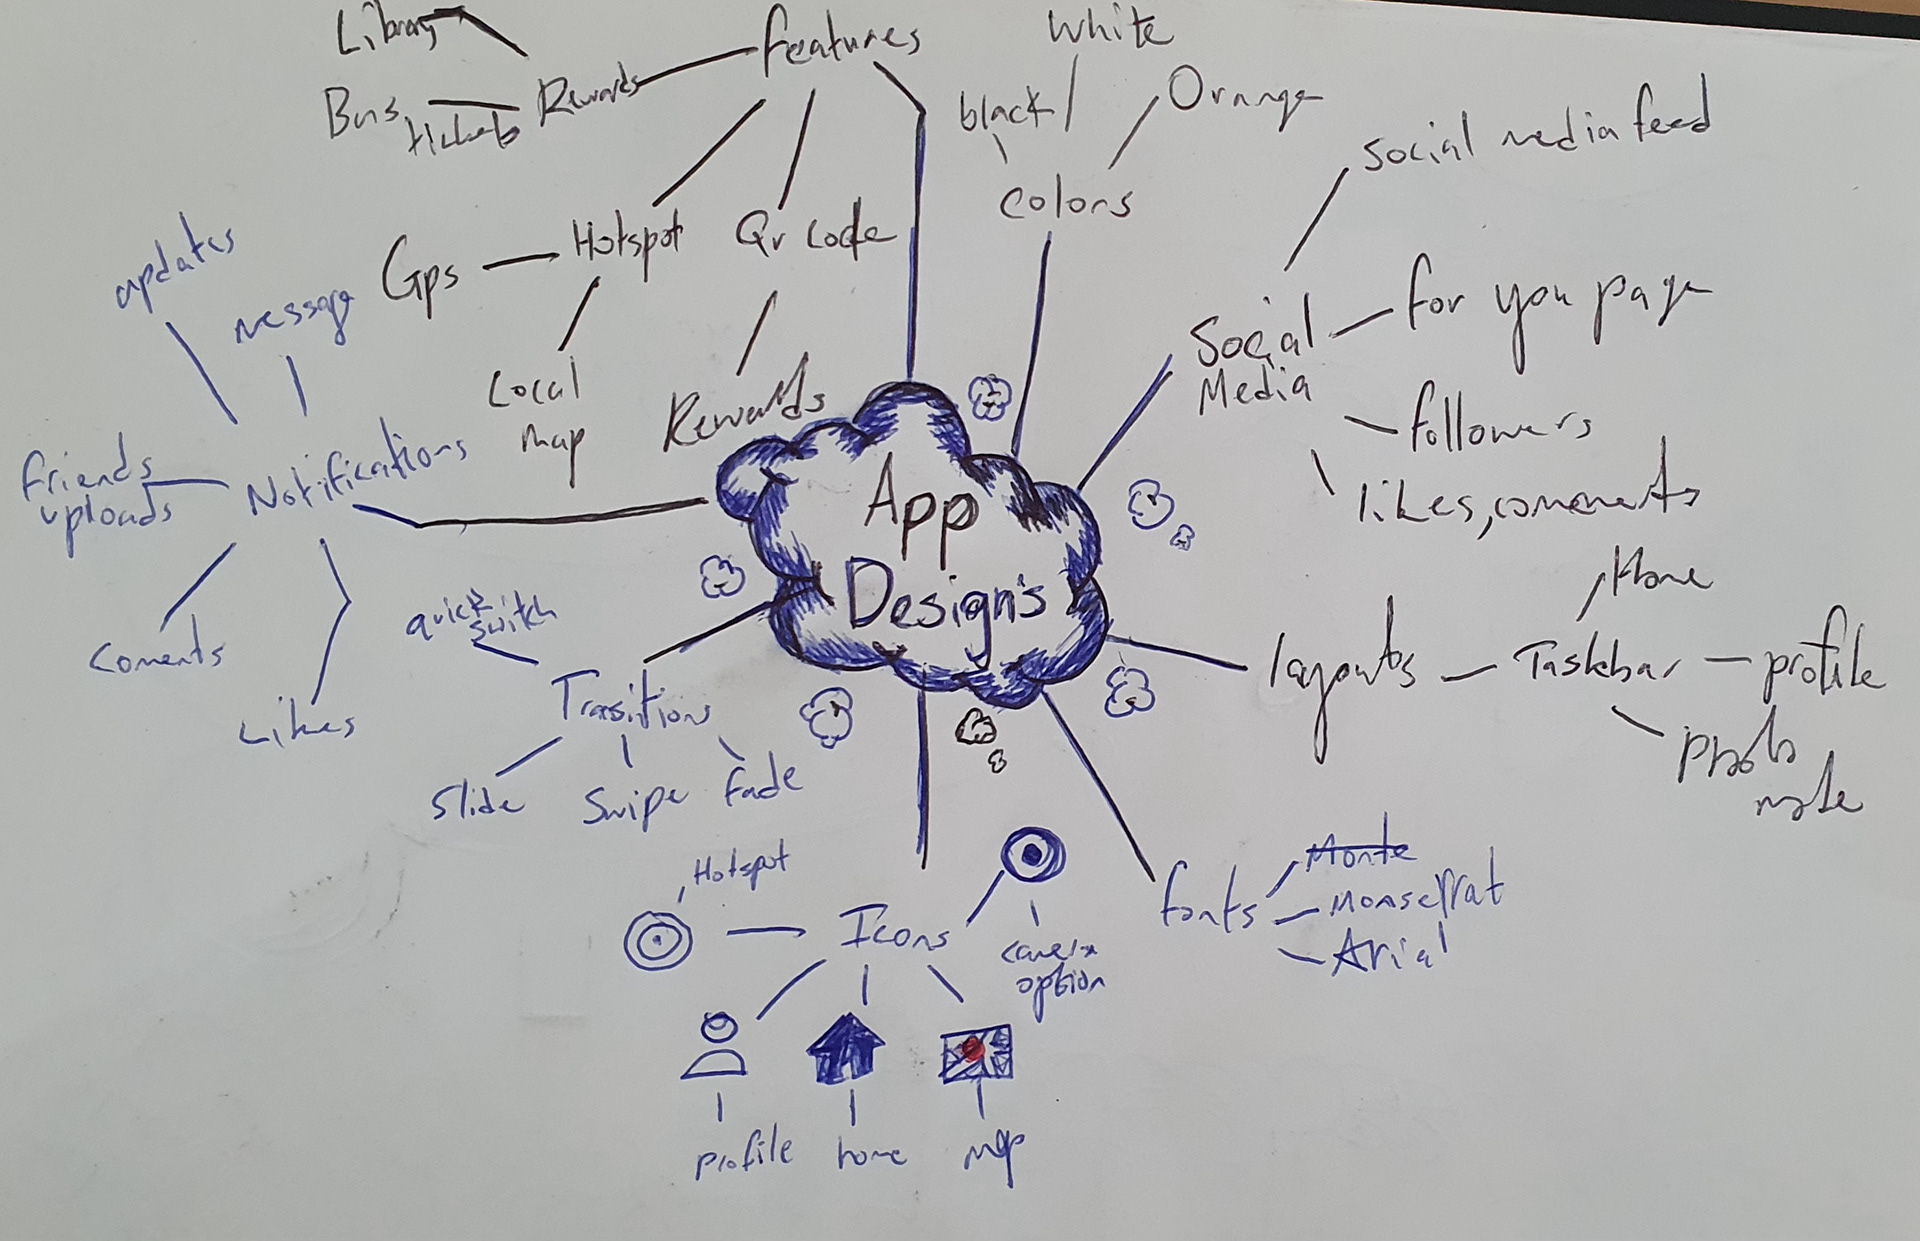 Library
features
white
Bus
tickets
Rewards
black
Orange
social media feed
colors
updates
message
Gps
Hotspot
Qr code
for you page
Social
Media
Local
map
Rewards
followers
friends
uploads
Notifications
App
Design's
likes, comments
Home
quick
switch
coments
Trasitions
layouts
Taskbar
profile
Likes
Slide
Swipe
fade
mode
Hotspot
Monte
fonts
Monserrat
Arial
Icons
camera
option
profile
home
map